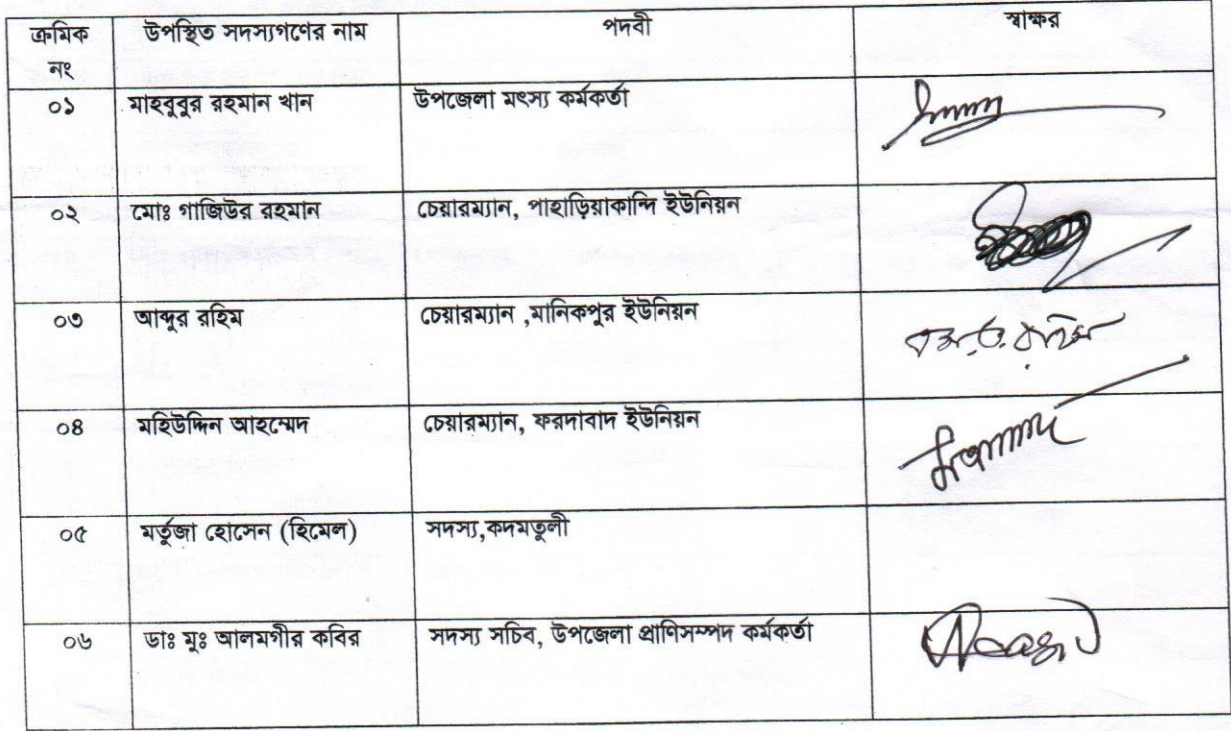 ক্রমিক নং	উপস্থিত সদস্যগণের নাম	পদবী	স্বাক্ষর
০১	মাহবুবুর রহমান খান	উপজেলা মৎস্য কর্মকর্তা
০২	মোঃ গাজিউর রহমান	চেয়ারম্যান, পাহাড়িয়াকান্দি ইউনিয়ন
০৩	আব্দুর রহিম	চেয়ারম্যান ,মানিকপুর ইউনিয়ন
০৪	মহিউদ্দিন আহম্মেদ	চেয়ারম্যান, ফরদাবাদ ইউনিয়ন
০৫	মর্তুজা হোসেন (হিমেল)	সদস্য,কদমতুলী
০৬	ডাঃ মুঃ আলমগীর কবির	সদস্য সচিব, উপজেলা প্রাণিসম্পদ কর্মকর্তা